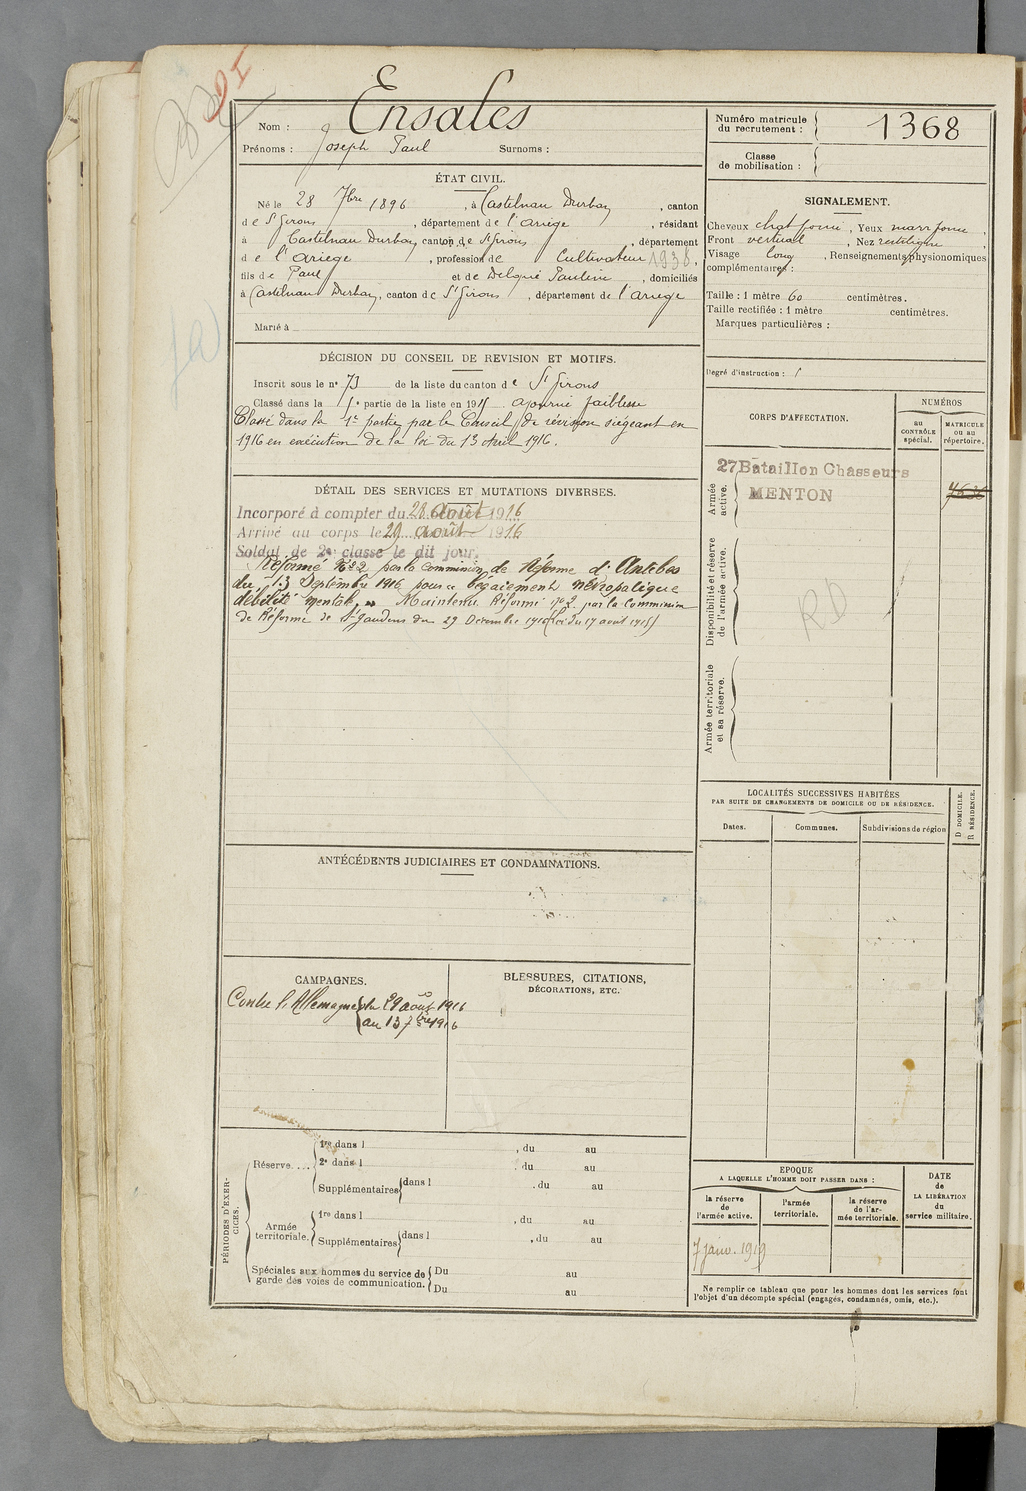 Nom : Ensales
Prénoms : Joseph Paul Surnoms :
Numéro matricule du recrutement : 1368
Classe de mobilisation :
ÉTAT CIVIL.
Né le 28 7bre 1896, à Castelnau Durban, canton
de St Girons, département de l'Ariège, résidant
à Castelnau Durban, canton de St Girons, département
de l'Ariège, profession de Cultivateur 1938,
fils de Paul et de Delqué Pauline, domiciliés
à Castelnau Durban, canton de St Girons, département de l'Ariège
Marié à
SIGNALEMENT.
Cheveux chat foncé, Yeux marr foncé,
Front vertical, Nez rectiligne,
Visage long, Renseignements physionomiques
complémentaires :
Taille : 1 mètre 60 centimètres.
Taille rectifiée : 1 mètre centimètres.
Marques particulières :
Degré d'instruction :
DÉCISION DU CONSEIL DE REVISION ET MOTIFS.
Inscrit sous le n° 73 de la liste du canton de St Girons
Classé dans la 5e partie de la liste en 1915 ajourné faiblesse
Classé dans la 1re partie par le Conseil de révision siégeant en
1916 en exécution de la loi du 13 avril 1916.
DÉTAIL DES SERVICES ET MUTATIONS DIVERSES.
Incorporé à compter du 28 Août 1916
Arrivé au corps le 29 août 1916
Soldat de 2e classe le dit jour.
Réformé N°2 par la Commission de Réforme d'Antibes
du 13 Septembre 1916 pour bégaiement névropatique
débilité mentale. Maintenu Réformé n°2 par la Commission
de Réforme de St Gaudens du 29 Décembre 1916 (Loi du 17 août 1915)
CORPS D'AFFECTATION.
NUMÉROS
au CONTRÔLE spécial.
MATRICULE ou au répertoire.
Armée active.
27 Bataillon Chasseurs
MENTON
Disponibilité et réserve de l'armée active.
RD
Armée territoriale et sa réserve.
LOCALITÉS SUCCESSIVES HABITÉES
PAR SUITE DE CHANGEMENTS DE DOMICILE OU DE RÉSIDENCE.
Dates.
Communes.
Subdivisions de région
D DOMICILE.
R RÉSIDENCE.
ANTÉCÉDENTS JUDICIAIRES ET CONDAMNATIONS.
CAMPAGNES.
Contre l'Allemagne du 29 août 1916
au 13 7bre 1916
BLESSURES, CITATIONS,
DÉCORATIONS, ETC.
PÉRIODES D'EXERCICES.
Réserve....
1re dans l , du au
2e dans l , du au
Supplémentaires dans l , du au
Armée territoriale.
1re dans l , du au
Supplémentaires dans l , du au
Spéciales aux hommes du service de garde des voies de communication.
Du au
Du au
EPOQUE
A LAQUELLE L'HOMME DOIT PASSER DANS :
la réserve de l'armée active.
l'armée territoriale.
la réserve de l'armée territoriale.
DATE de LA LIBÉRATION du service militaire.
7 janv. 1919
Ne remplir ce tableau que pour les hommes dont les services font
l'objet d'un décompte spécial (engagés, condamnés, omis, etc.).